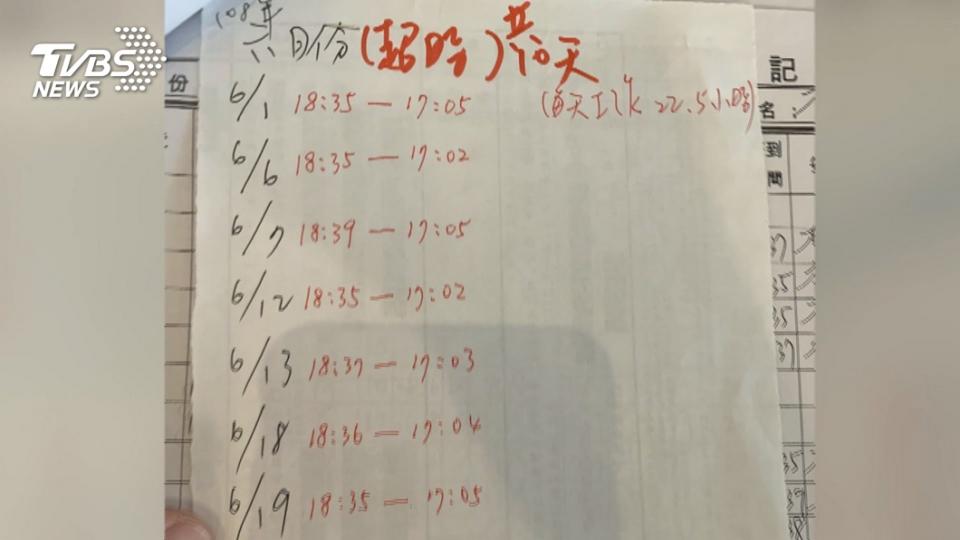 TVBS
NEWS
108年
六月份(超時)共10天
(每天工作22.5小時)
6/1 18:35 — 17:05
6/6 18:35 — 17:02
6/7 18:39 — 17:05
6/12 18:35 — 17:02
6/13 18:37 — 17:03
6/18 18:36 — 17:04
6/19 18:35 — 17:05
份
記
名
到
間